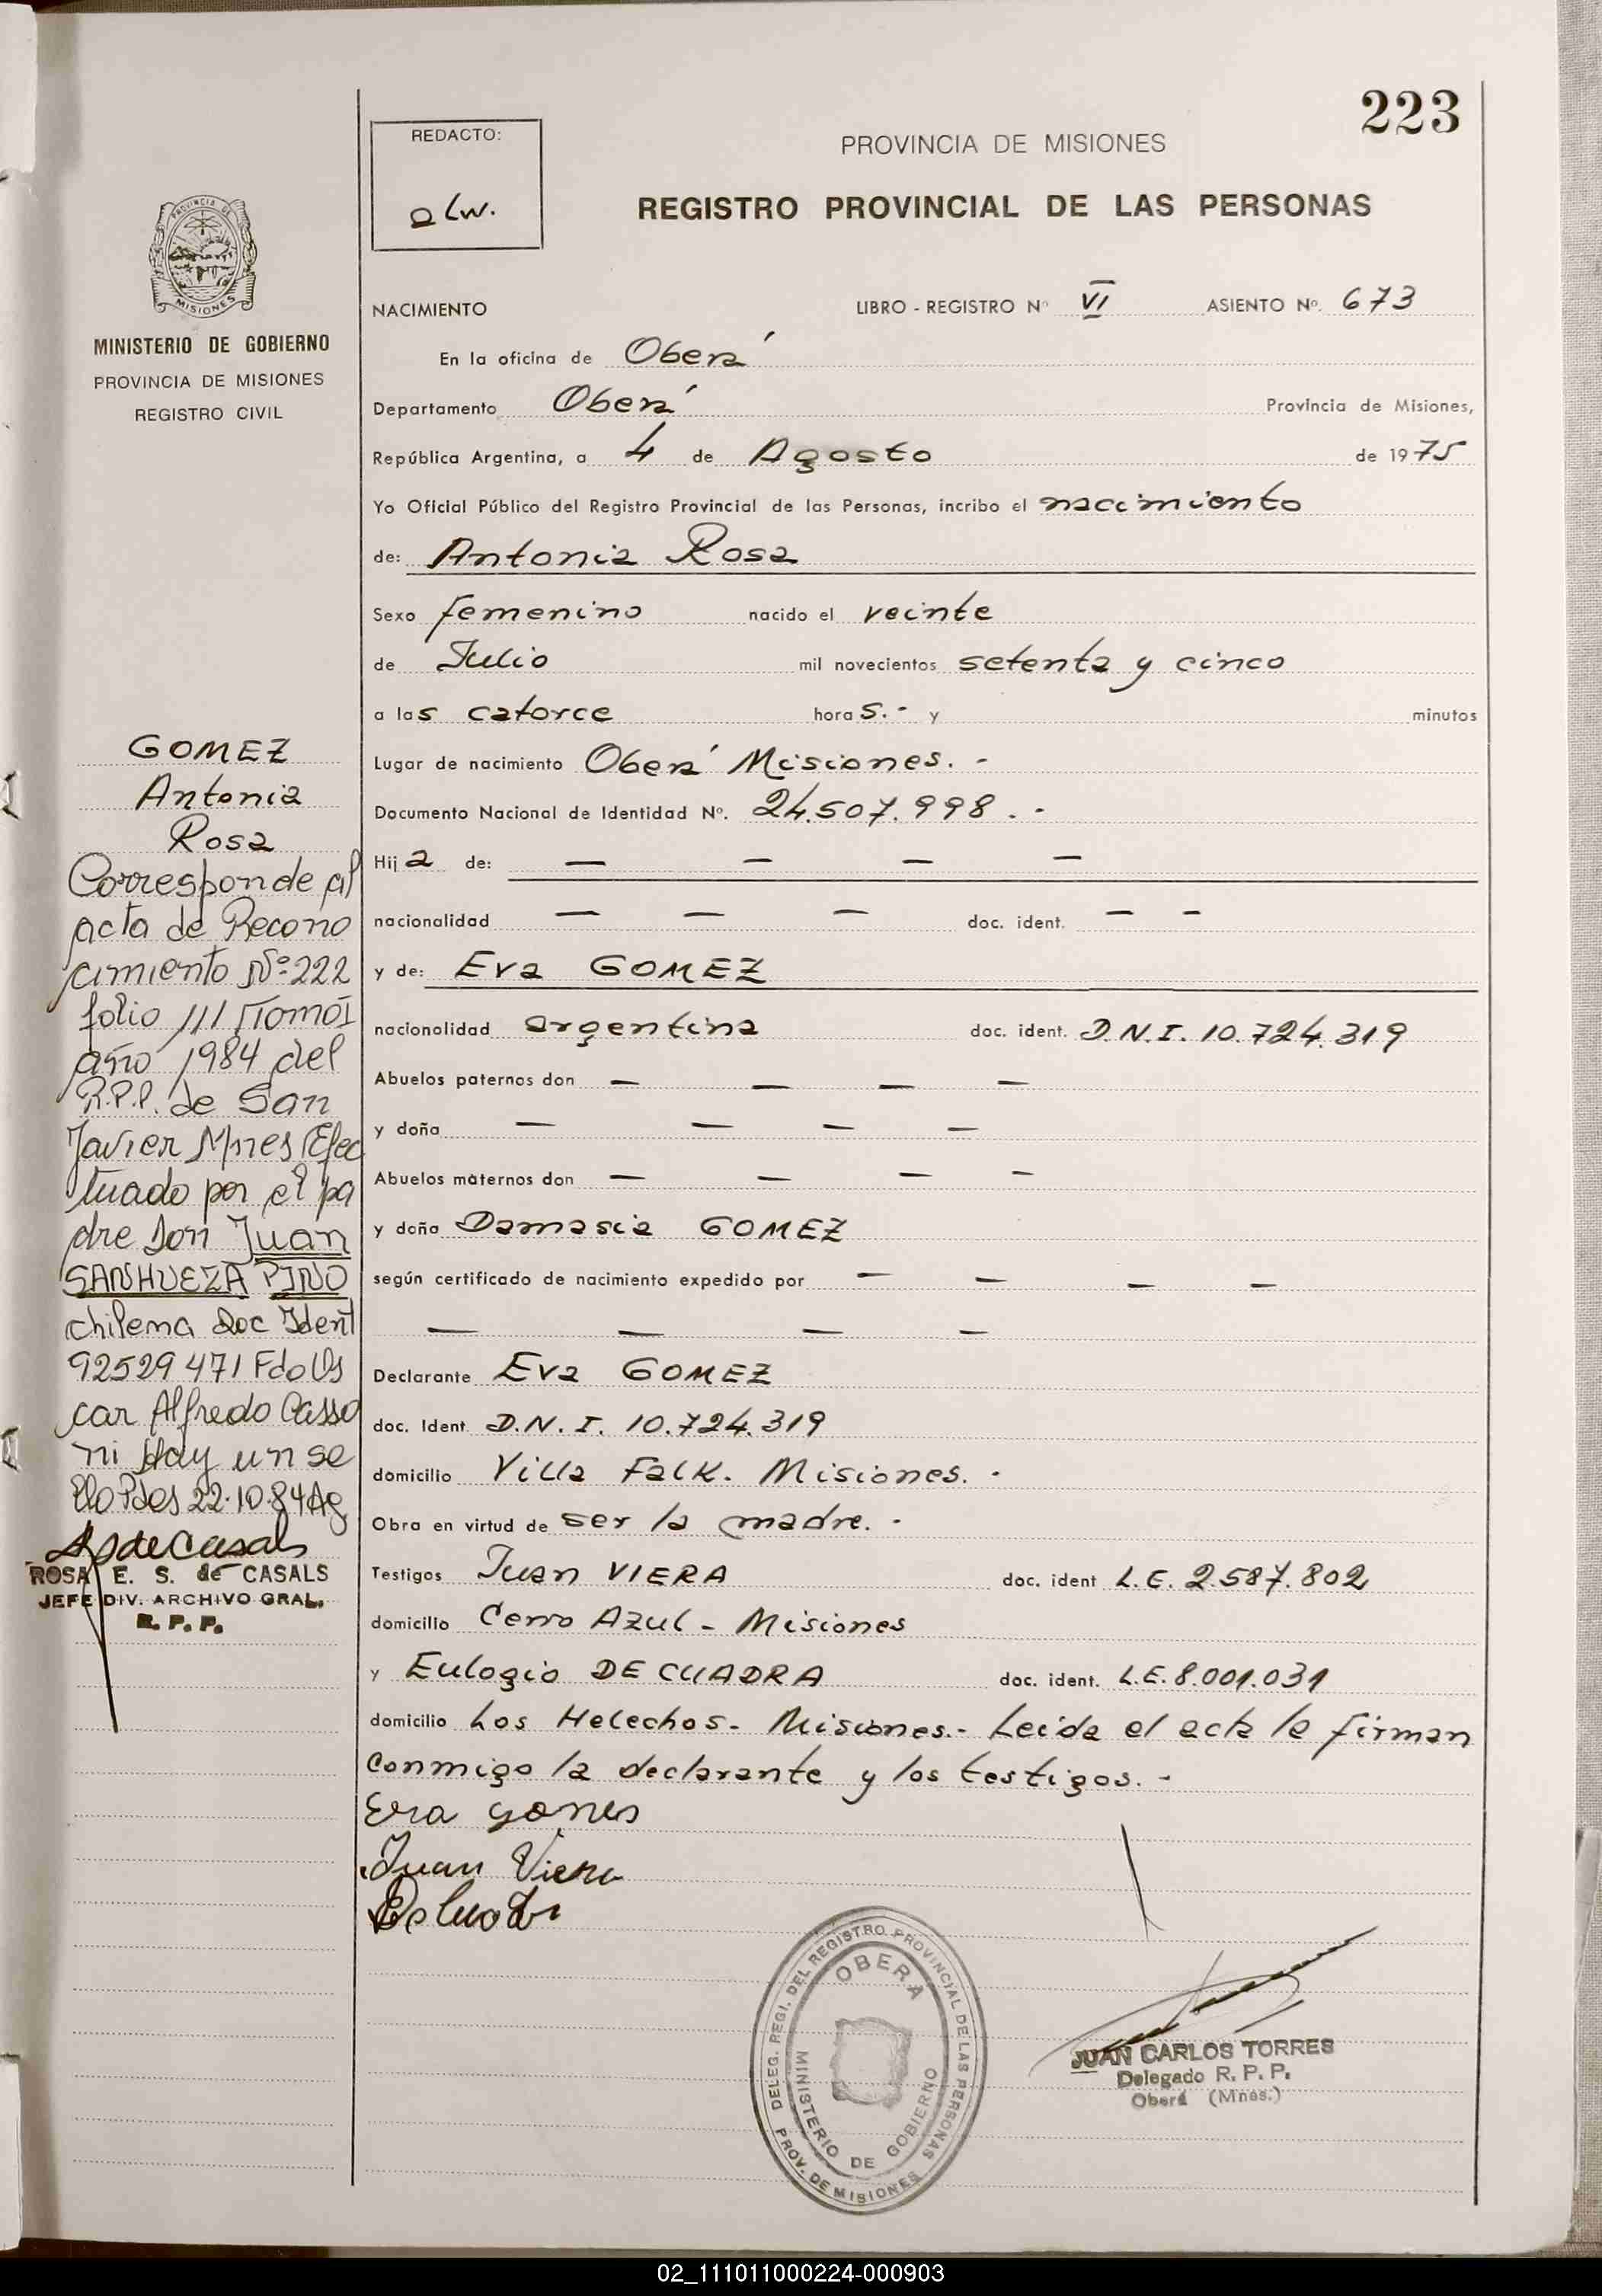 223
REDACTO:
alw.
PROVINCIA DE MISIONES
REGISTRO PROVINCIAL DE LAS PERSONAS
PROVINCIA DE
MISIONES
MINISTERIO DE GOBIERNO
PROVINCIA DE MISIONES
REGISTRO CIVIL
NACIMIENTO LIBRO - REGISTRO Nº VI ASIENTO Nº. 673
En la oficina de Oberá
Departamento Oberá Provincia de Misiones,
República Argentina, a 4 de Agosto de 1975
Yo Oficial Público del Registro Provincial de las Personas, incribo el nacimiento
de: Antonia Rosa
Sexo femenino nacido el veinte
de Julio mil novecientos setenta y cinco
a las catorce horas.- y minutos
Lugar de nacimiento Oberá Misiones. -
Documento Nacional de Identidad Nº. 24.507.998. -
Hija de: — — — —
nacionalidad — — — doc. ident. — —
y de: Eva GOMEZ
nacionalidad argentina doc. ident. D.N.I. 10.724.319
Abuelos paternos don — — — —
y doña — — — —
Abuelos maternos don — — — —
y doña Damasia GOMEZ
según certificado de nacimiento expedido por — — — —
— — — —
Declarante Eva GOMEZ
doc. Ident. D.N.I. 10.724.319
domicilio Villa Falk. Misiones. -
Obra en virtud de ser la madre. -
Testigos Juan VIERA doc. ident L.E. 2.587.802
domicilio Cerro Azul - Misiones
y Eulogio DE CUADRA doc. ident. L.E. 8.001.031
domicilio Los Helechos - Misiones.- Leida el acta la firman
conmigo la declarante y los testigos. -
Eva gomes
Juan Viera
GOMEZ
Antonia
Rosa
Corresponde al
acta de Recono
cimiento Nº 222
folio 111 Tomo I
año 1984 del
R.P.P. de San
Javier Mnes Efec
tuado por el pa
dre Don Juan
SANHUEZA PINO
chilena Doc Ident
92529471 Fdo Os
car Alfredo Casso
ni Hay un se
llo Pdas 22.10.84 Ag
ROSA E. S. de CASALS
JEFE DIV. ARCHIVO GRAL.
R. P. P.
DELEG. REGI. DEL REGISTRO PROVINCIAL DE LAS PERSONAS
PROV. DE MISIONES
OBERA
MINISTERIO DE GOBIERNO
JUAN CARLOS TORRES
Delegado R. P. P.
Oberá (Mnes.)
02_111011000224-000903